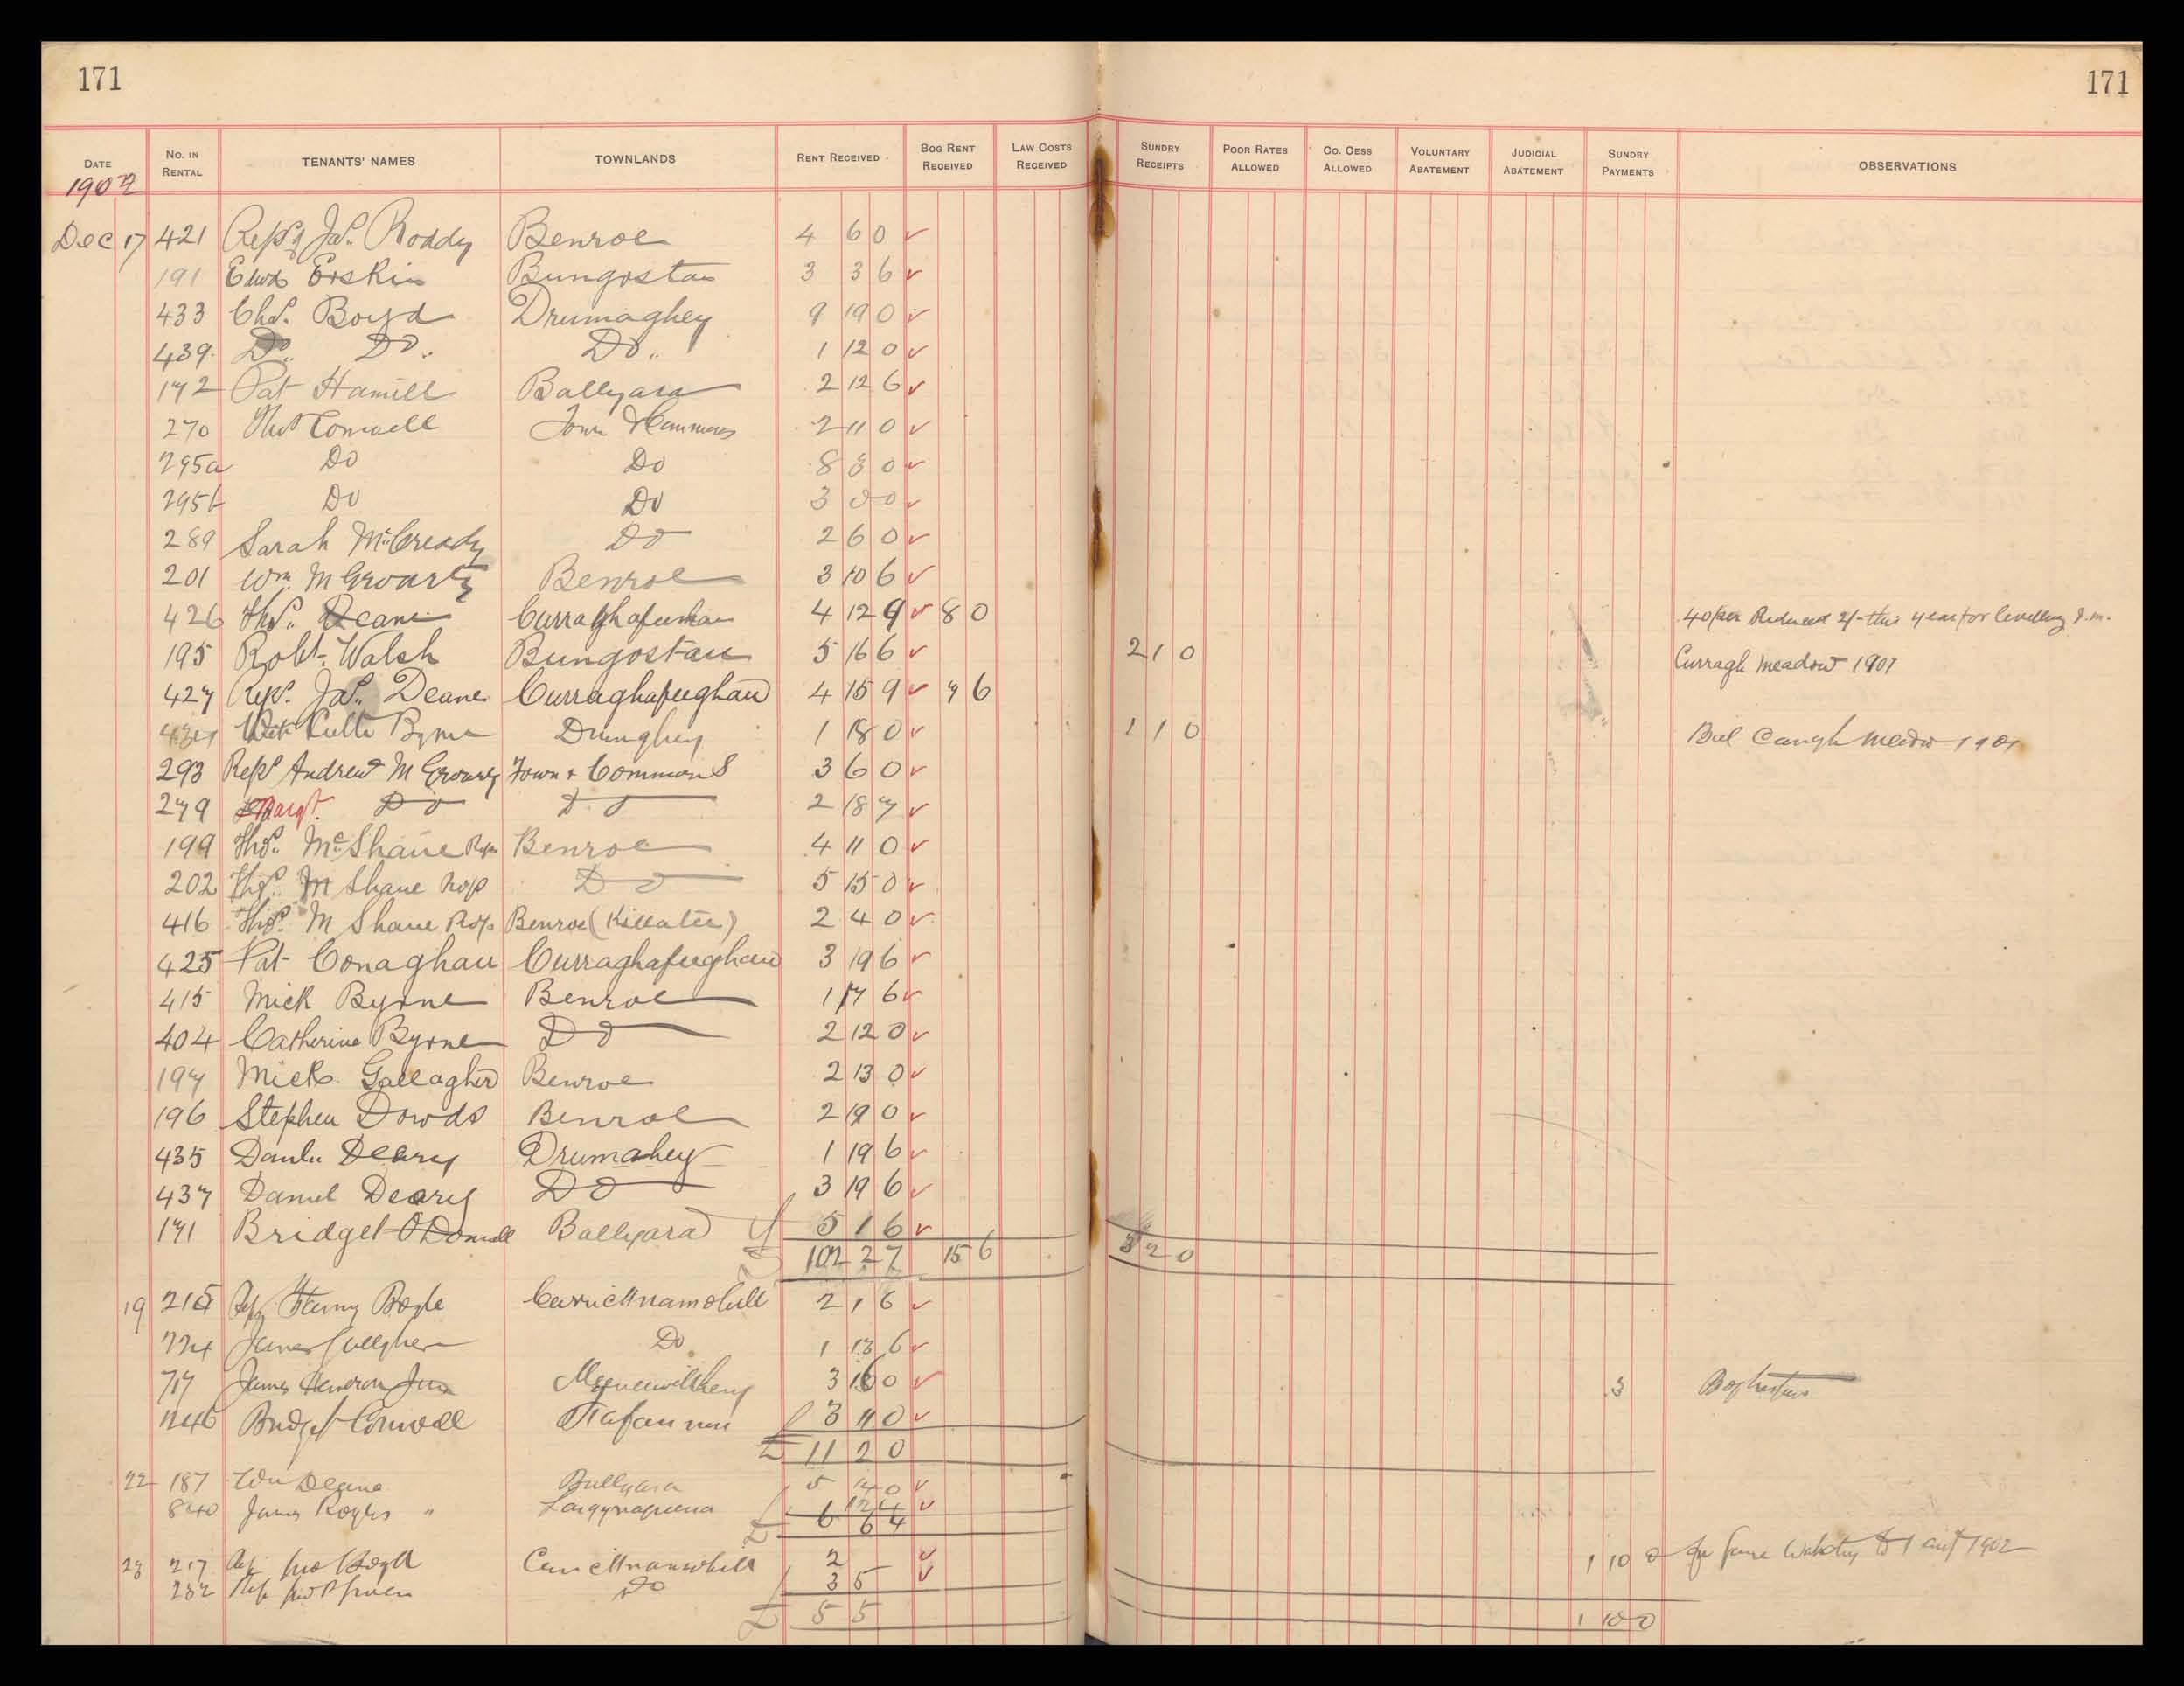 171 171
DATE No. IN RENTAL TENANTS' NAMES TOWNLANDS RENT RECEIVED BOG RENT RECEIVED LAW COSTS RECEIVED SUNDRY RECEIPTS POOR RATES ALLOWED CO. CESS ALLOWED VOLUNTARY ABATEMENT JUDICIAL ABATEMENT SUNDRY PAYMENTS OBSERVATIONS
1902
Dec 17 421 Reps of Jas. Roddy Benroe 4 6 0
191 Edwd Erskin Bungosteen 3 3 6
433 Chas. Boyd Drumaghey 9 19 0
439 Do. Do. Do. 1 12 0
172 Pat Hamill Ballyara 2 12 6
270 Thos Conwell Town & Commons 2 11 0
295a Do Do 8 8 0
295b Do Do 3 0 0
289 Sarah McCready Do 2 6 0
201 Wm. M Groarty Benroe 3 10 6
426 Thos. Deane Curraghafeeghan 4 12 9 8 0 Reduced 2/- this year for levelling
195 Robt. Walsh Bungosteen 5 16 6 2 1 0 Curragh Meadow 1901
427 Reps. Jas. Deane Curraghafeeghan 4 15 9 7 6
Byrne 1 18 0 1 1 0 1901
293 Reps Andrew M Groarty Town & Commons 3 6 0
279 Margt. Do Do 2 18 7
199 Thos. McShane Benroe 4 11 0
202 Thos. M Shane Do 5 15 0
416 Thos. M Shane Benroe (Killatee) 2 4 0
425 Pat Conaghan Curraghafeeghan 3 19 6
415 Mick Byrne Benroe 1 17 6
404 Catherine Byrne Do 2 12 0
197 Mick Gallagher Benroe 2 13 0
196 Stephen Dowds Benroe 2 19 0
435 Daniel Deary Drumahey 1 19 6
437 Daniel Deary Do 3 19 6
171 Bridget O'Donnell Ballyara 5 1 6
£ 102 2 7 15 6 3 2 0
19 215 Boyle Carricknamohill 2 1 6
James Gallagher Do 1 13 6
717 James 3 16 0 3
Bridget Conwell 3 11 0
£ 11 2 0
22 187 Wm Deane Ballyara 5 14 0
840 James Rogers " 12 4
£ 6 6 4
23 217 Carricknamohill 2 1 10 0 1902
232 Do 3 5
£ 5 5 1 10 0